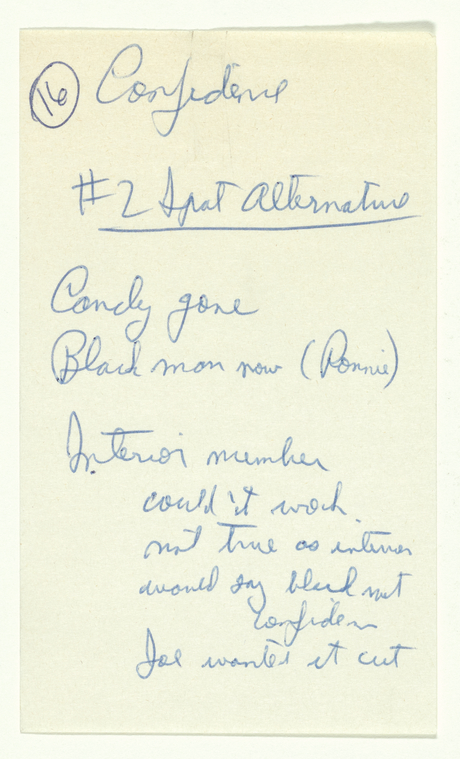 16 Confidence
#2 Spot Alternative
Candy gone
Black man now (Ronnie)
Interior member
could it work
not true as interior
would say black not
confidence
Joe wanted it cut